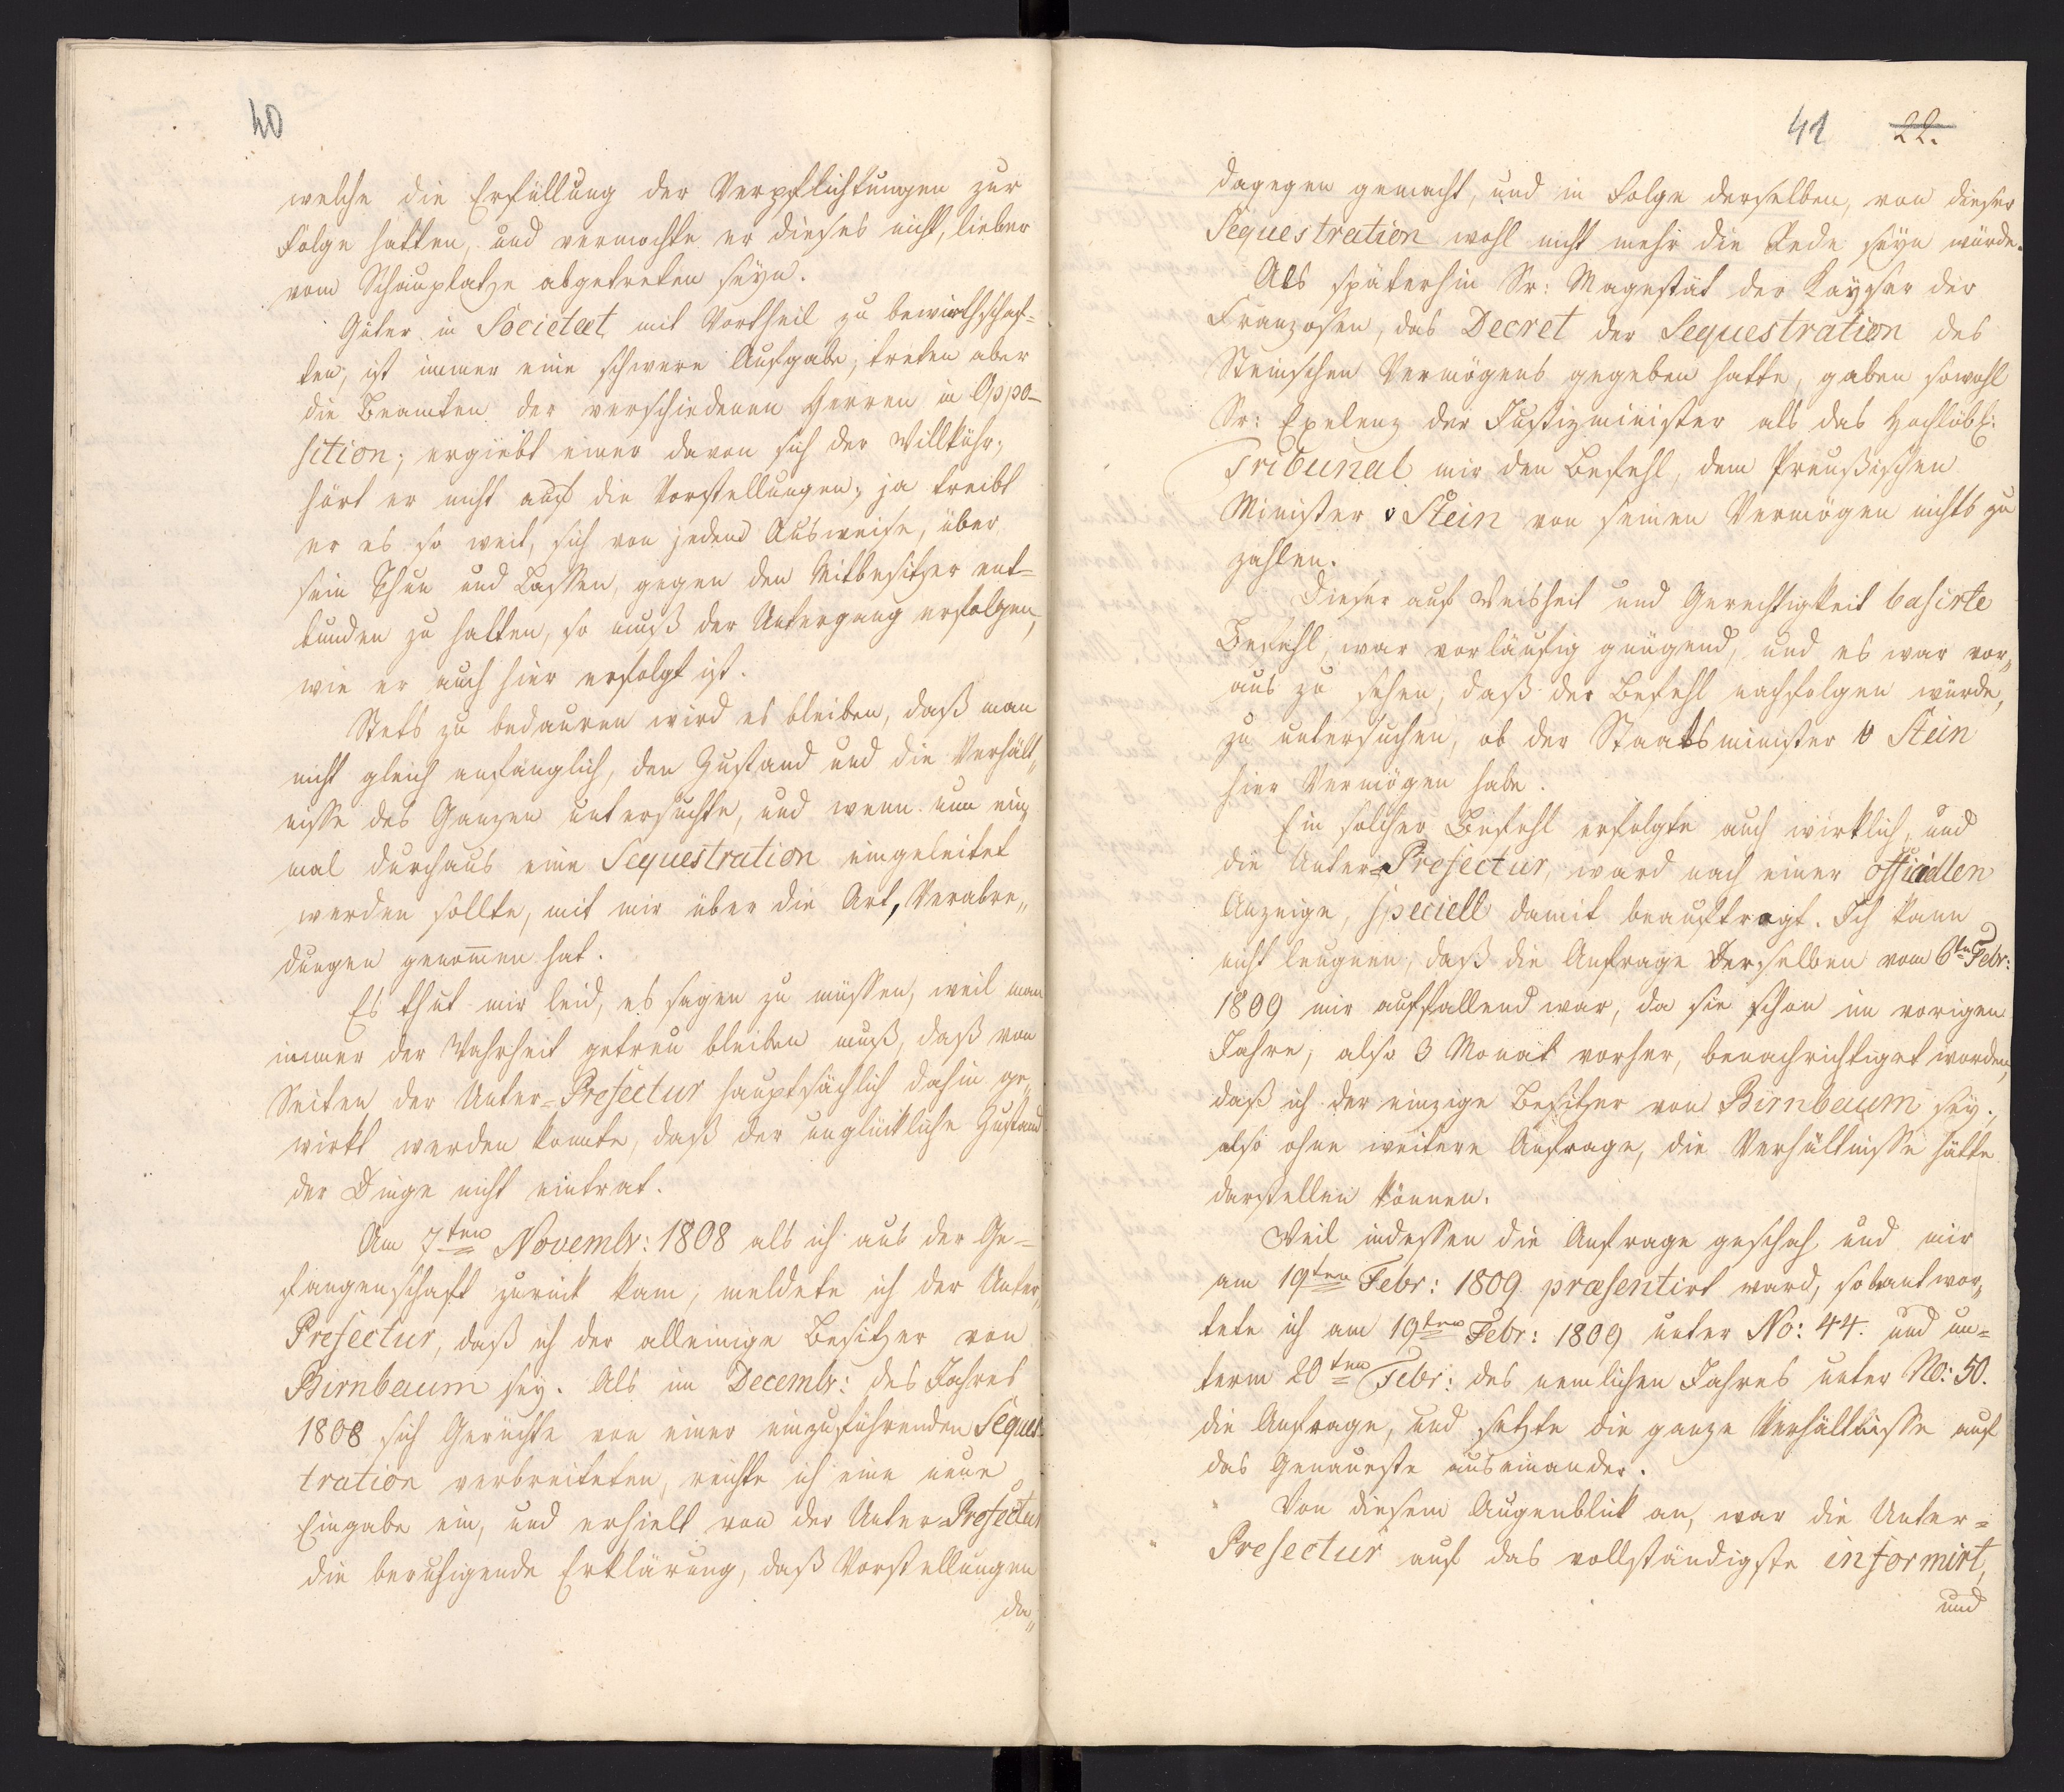 40
welche die Erfüllung der Verpflichtungen zur
Folge hatten, und vermochte er dieses nicht, lieber
vom Schauplatze abgetreten seyn.
Güter in Societæt mit Vortheil zu bewirthschaf=
ten, ist immer eine schwere Aufgabe, treten aber
die Beamten der verschiedenen Herren in Oppo-
sition; ergiebt einer davon sich der Willkühr;
hört er nicht auf die Vorstellungen; ja treibt
er es so weit, sich von jedem Ausweise, über
sein Thun und Lassen, gegen den Mitbesitzer ent=
bunden zu halten, so muß der Untergang erfolgen,
wie er auch hier erfolgt ist.
Stets zu bedauren wird es bleiben, daß man
nicht gleich anfänglich, den Zustand und die Verhält„
nisse des Ganzen untersuchte, und wenn nun ein„
mal durchaus eine Sequestration eingeleitet
werden sollte, mit mir über die Art, Verabre„
dungen genom̄en hat.
Es thut mir leid, es sagen zu müssen, weil man
immer der Wahrheit getreu bleiben muß, daß von
Seiten der Unter=Prefectur hauptsächlich dahin ge„
wirkt werden konnte, daß der unglückliche Zustand
der Dinge nicht eintrat.
Am 7ten Novembr: 1808 als ich aus der Ge=
fangenschaft zurück kam, meldete ich der Unter„
Prefectur, daß ich der alleinige Besitzer von
Birnbaum sey. Als im Decembr: des Jahres
1808 sich Gerüchte von einer einzuführenden Seques-
tration verbreiteten, reichte ich eine neue
Eingabe ein, und erhielt von der Unter Prefectur
die beruhigende Erklärung, daß Vorstellungen
da„
41 22.
dagegen gemacht, und in Folge derselben, von dieser
Sequestration wohl nicht mehr die Rede seyn würde.
Als späterhin Sr: Magestät der Kayser der
Franzosen, das Decret der Sequestration des
Steinschen Vermögens gegeben hatte, gaben sowohl
Sr: Exelenz der Justizminister als das Hochlöbl:
Tribunal mir den Befehl, dem Preußischen
Minister v Stein von seinen Vermögen nichts zu
zahlen.
Dieser auf Weisheit und Gerechtigkeit basirte
Befehl, war vorläufig gnügend, und es war vor„
aus zu sehen, daß der Befehl nachfolgen würde,
zu untersuchen, ob der Staatsminister v Stein
hier Vermögen habe.
Ein solcher Befehl erfolgte auch wirklich, und
die Unter=Prefectur, ward nach einer officiellen
Anzeige, speciell damit beauftragt. Ich kann
nicht leugnen, daß die Anfrage derselben vom 6ten Febr:
1809 mir auffallend war, da sie schon im vorigen
Jahre, also 3 Monat vorher, benachrichtiget worden,
daß ich der einzige Besitzer von Birnbaum sey;
also ohne weitere Anfrage, die Verhältnisse hätte
darstellen können.
Weil indessen die Anfrage geschah und mir
am 19ten Febr: 1809 præsentirt ward, so beantwor„
tete ich am 19ten Febr: 1809 unter No: 44. und un=
term 20ten Febr: des nemlichen Jahres unter No: 50.
die Anfrage, und setzte die ganze Verhältnisse auf
das Genaueste auseinander.
Von diesem Augenblick an, war die Unter=
Prefectur auf das vollständigste informirt,
und